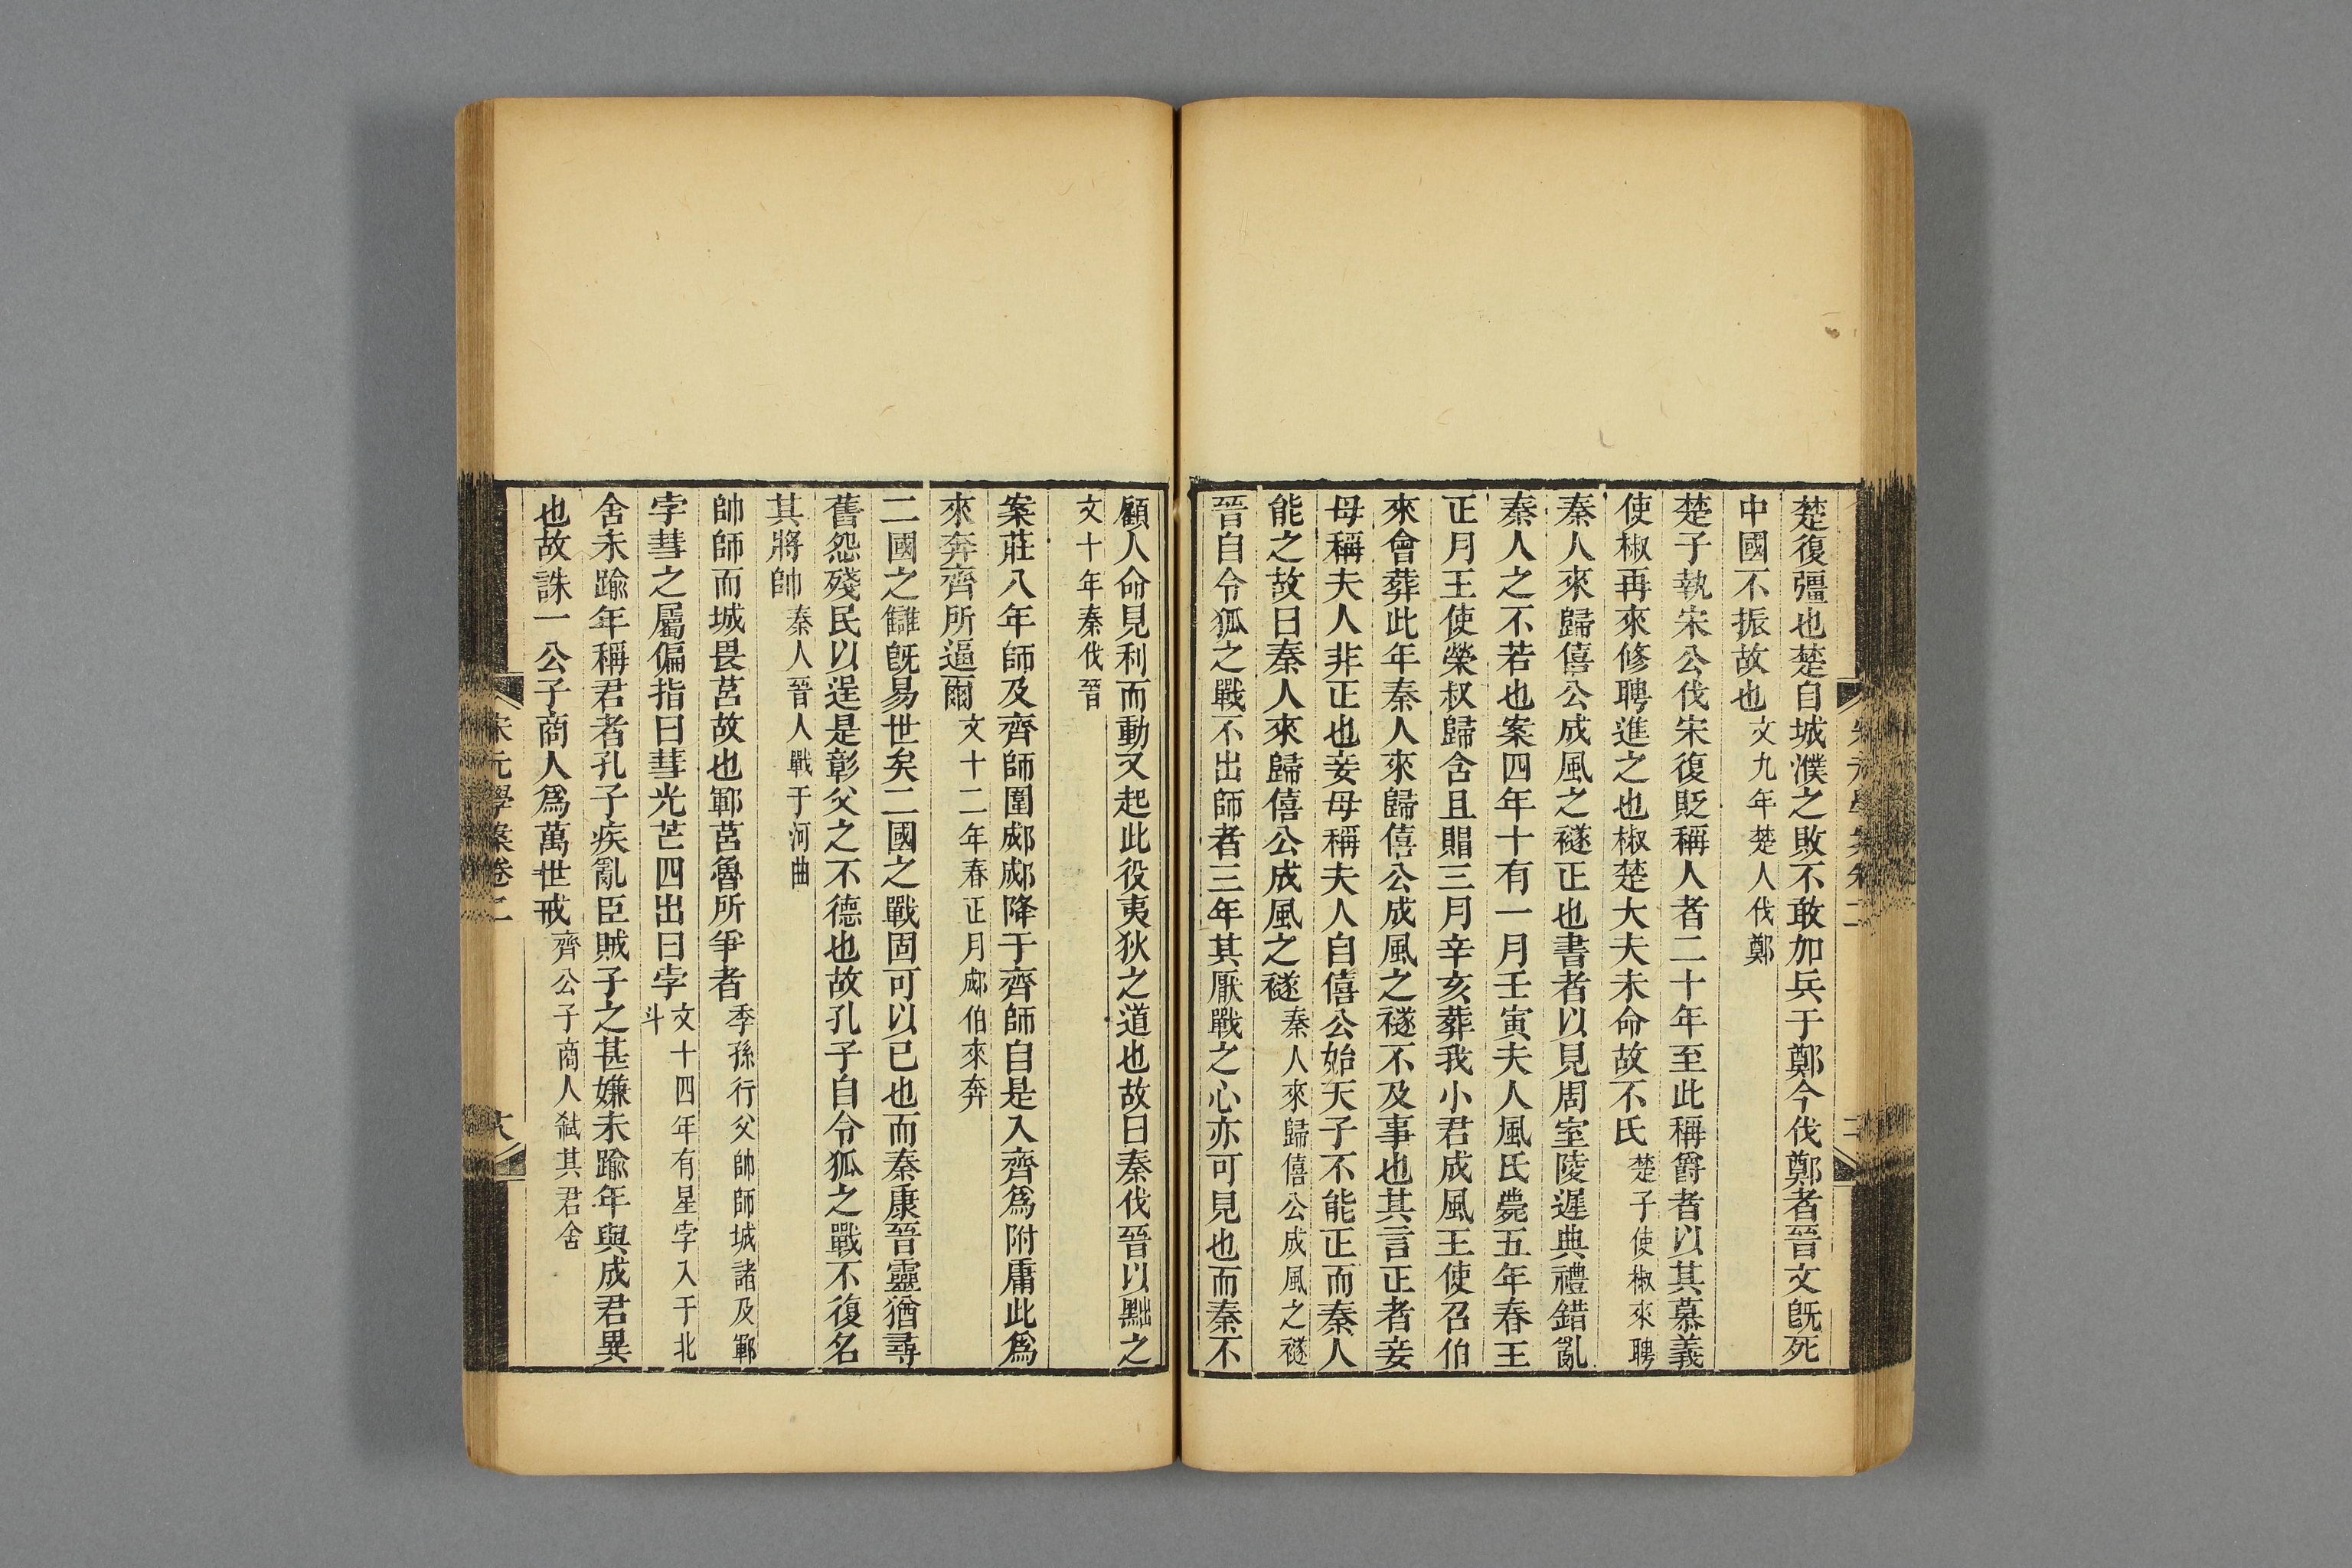 楚復彊也楚自城濮之敗不敢加兵于鄭今伐鄭者晉文旣死
中國不振故也文九年楚人伐鄭
楚子執宋公伐宋復貶稱人者二十年至此稱爵者以其慕義
使椒再來修聘進之也椒楚大夫未命故不氏楚子使椒來聘
秦人來歸僖公成風之襚正也書者以見周室陵遲典禮錯亂
秦人之不若也案四年十有一月壬寅夫人風氏薨五年春王
正月王使榮叔歸含且賵三月辛亥葬我小君成風王使召伯
來會葬此年秦人來歸僖公成風之襚不及事也其言正者妾
母稱夫人非正也妾母稱夫人自僖公始天子不能正而秦人
能之故曰秦人來歸僖公成風之襚秦人來歸僖公成風之襚
晉自令狐之戰不出師者三年其厭戰之心亦可見也而秦不
顧人命見利而動又起此役夷狄之道也故曰秦伐晉以黜之
文十年秦伐晉
案莊八年師及齊師圍郕郕降于齊師自是入齊爲附庸此爲
來奔齊所逼爾文十二年春正月郕伯來奔
二國之讎旣易世矣二國之戰固可以已也而秦康晉靈猶尋
舊怨殘民以逞是彰父之不德也故孔子自令狐之戰不復名
其將帥秦人晉人戰于河曲
帥師而城畏莒故也鄆莒魯所爭者季孫行父帥師城諸及鄆
孛彗之屬偏指曰彗光芒四出曰孛文十四年有星孛入于北
斗
舍未踰年稱君者孔子疾亂臣賊子之甚嫌未踰年與成君異
也故誅一公子商人爲萬世戒齊公子商人弑其君舍
宋元學案卷二